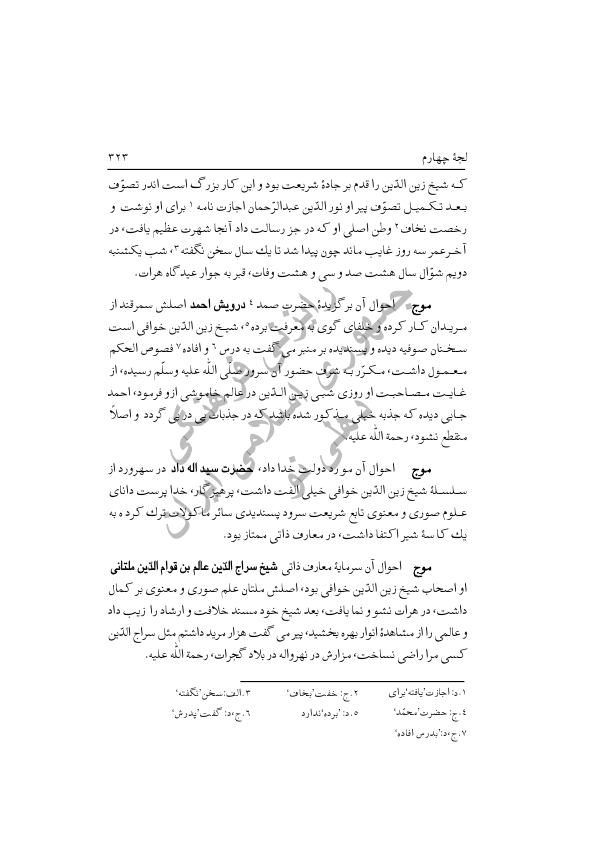 لجۀ چهارم ۳۲۳
که شیخ زین الدّین را قدم بر جادۀ شریعت بود و این کار بزرگ است اندر تصوّف
بعد تکمیل تصوّف پیر او نور الدّین عبدالرّحمان اجازت نامه ۱ برای او نوشت و
رخصت نخاف۲ وطن اصلی او که در جز رسالت داد آنجا شهرت عظیم یافت، در
آخرعمر سه روز غایب ماند چون پیدا شد تا یك سال سخن نگفته۳، شب یکشنبه
دویم شوّال سال هشت صد و سی و هشت وفات، قبر به جوار عیدگاه هرات.
موج احوال آن برگزیدۀ حضرت صمد ۴ درویش احمد اصلش سمرقند از
مریدان کار کرده و خلفای گوی به معرفت برده۵، شیخ زین الدّین خوافی است
سخنان صوفیه دیده و پسندیده بر منبر می گفت به درس ۶ و افاده۷ فصوص الحکم
معمول داشت، مکرّر به شرف حضور آن سرور صلّی الله علیه وسلّم رسیده، از
غایت مصاحبت او روزی شبی زین الدّین در عالم خاموشی ازو فرمود، احمد
جابی دیده که جذبه خیلی مذکور شده باشد که در جذبات پی در پی گردد و اصلاً
منقطع نشود، رحمة الله علیه.
موج احوال آن مورد دولت خدا داد، حضرت سید اله داد در سهرورد از
سلسلۀ شیخ زین الدّین خوافی خیلی الفت داشت، پرهیزگار، خدا پرست دانای
علوم صوری و معنوی تابع شریعت سرود پسندیدی سائر ماکولات ترك کرده به
یك کاسۀ شیر اکتفا داشت، در معارف ذاتی ممتاز بود.
موج احوال آن سرمایۀ معارف ذاتی شیخ سراج الدّین عالم بن قوام الدّین ملتانی
او اصحاب شیخ زین الدّین خوافی بود، اصلش ملتان علم صوری و معنوی بر کمال
داشت، در هرات نشو و نما یافت، بعد شیخ خود مسند خلافت و ارشاد را زیب داد
و عالمی را از مشاهدۀ انوار بهره بخشید، پیر می گفت هزار مرید داشتم مثل سراج الدّین
کسی مرا راضی نساخت، مزارش در نهرواله در بلاد گجرات، رحمة الله علیه.
۱.د: اجازت’یافته‘برای ۲.ج: خفت’بخاف‘ ۳.الف:سخن’نگفته‘
۴.ج: حضرت’محمّد‘ ۵.د: ’برده‘ندارد ۶.ج،د: گفت’پدرش‘
۷.ج،د:’بدرس افاده‘